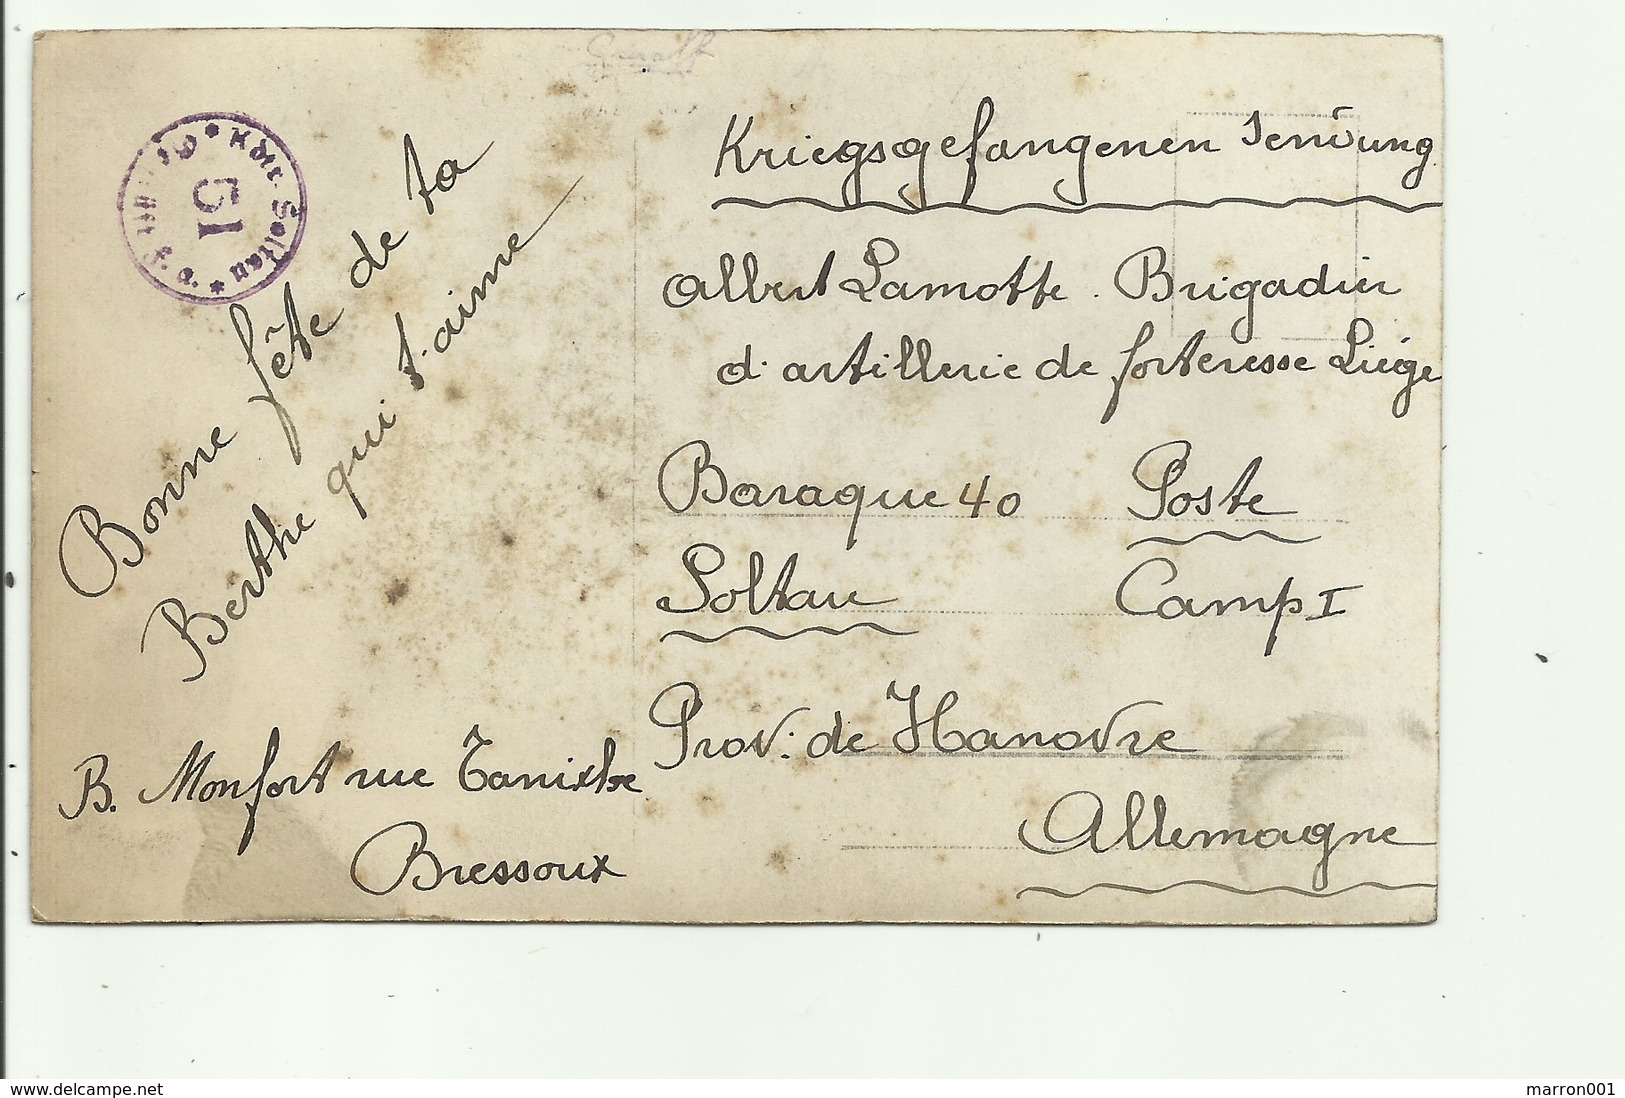 Kriegsgefangenen Sendung
Albert Lamotte. Brigadier
d'artillerie de forteresse Liége
Baraque 40 Poste
Soltau Camp I
Prov. de Hanovre
Allemagne
Bonne fête de ta
Berthe qui t'aime
B. Monfort rue
Bressoux
* Kdtr. Soltau *
51
www.delcampe.net
marron001